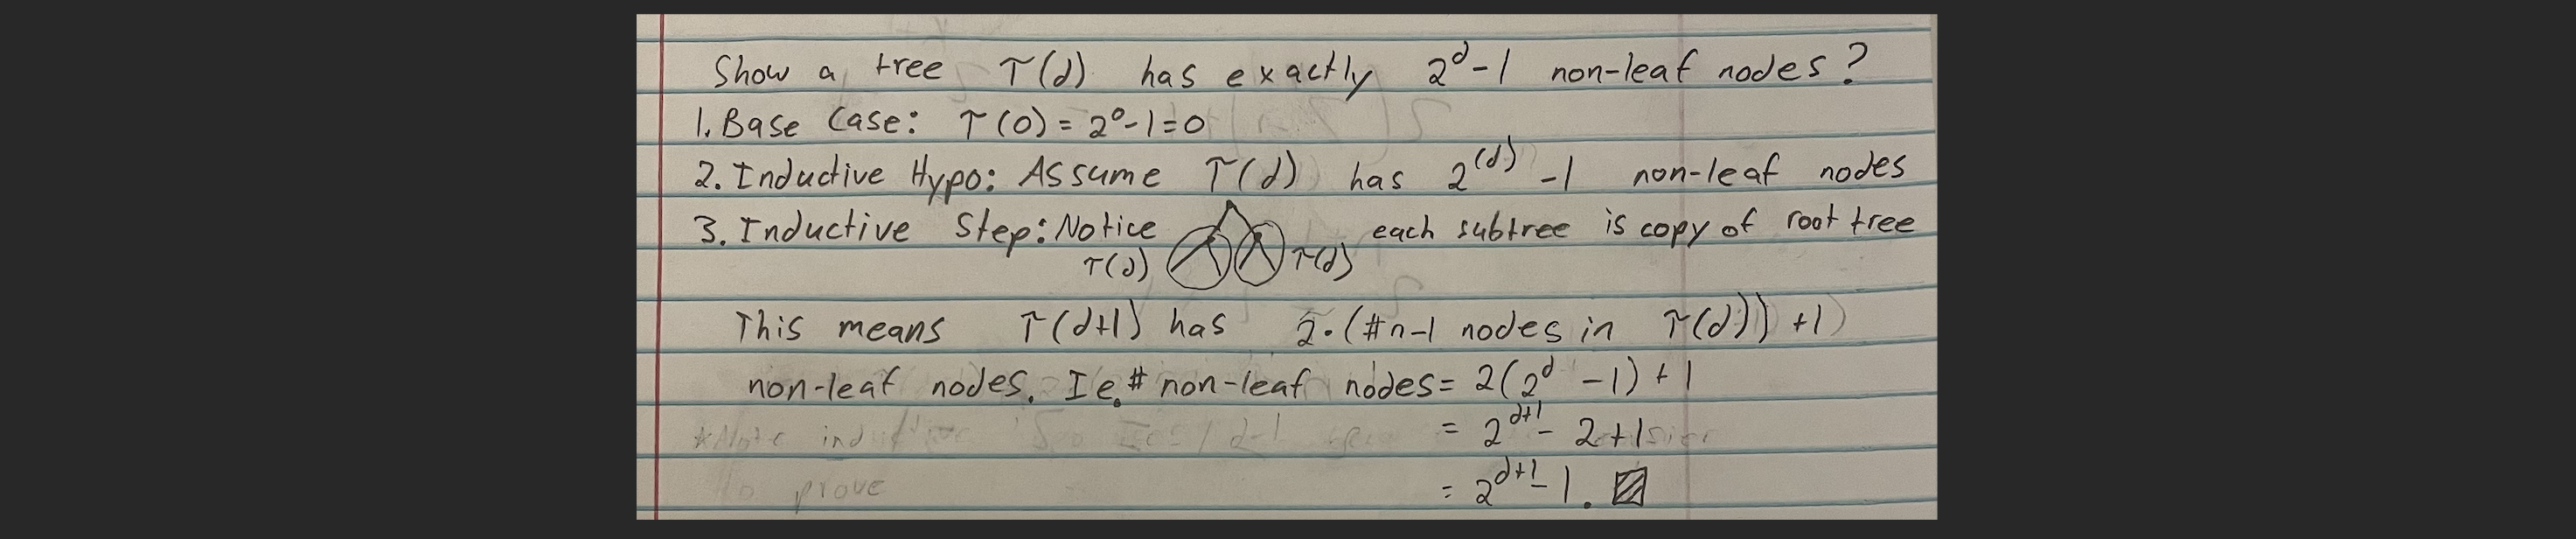 Show a tree T(d) has exactly 2^d - 1 non-leaf nodes?
1. Base Case: T(0) = 2^0 - 1 = 0
2. Inductive Hypo: Assume T(d) has 2^(d) - 1 non-leaf nodes
3. Inductive Step: Notice each subtree is copy of root tree
T(d) T(d)
This means T(d+1) has 2·(#n-l nodes in T(d)) +1)
non-leaf nodes. Ie. # non-leaf nodes = 2(2^d - 1) + 1
= 2^d+1 - 2 + 1
= 2^d+1 - 1.
to prove